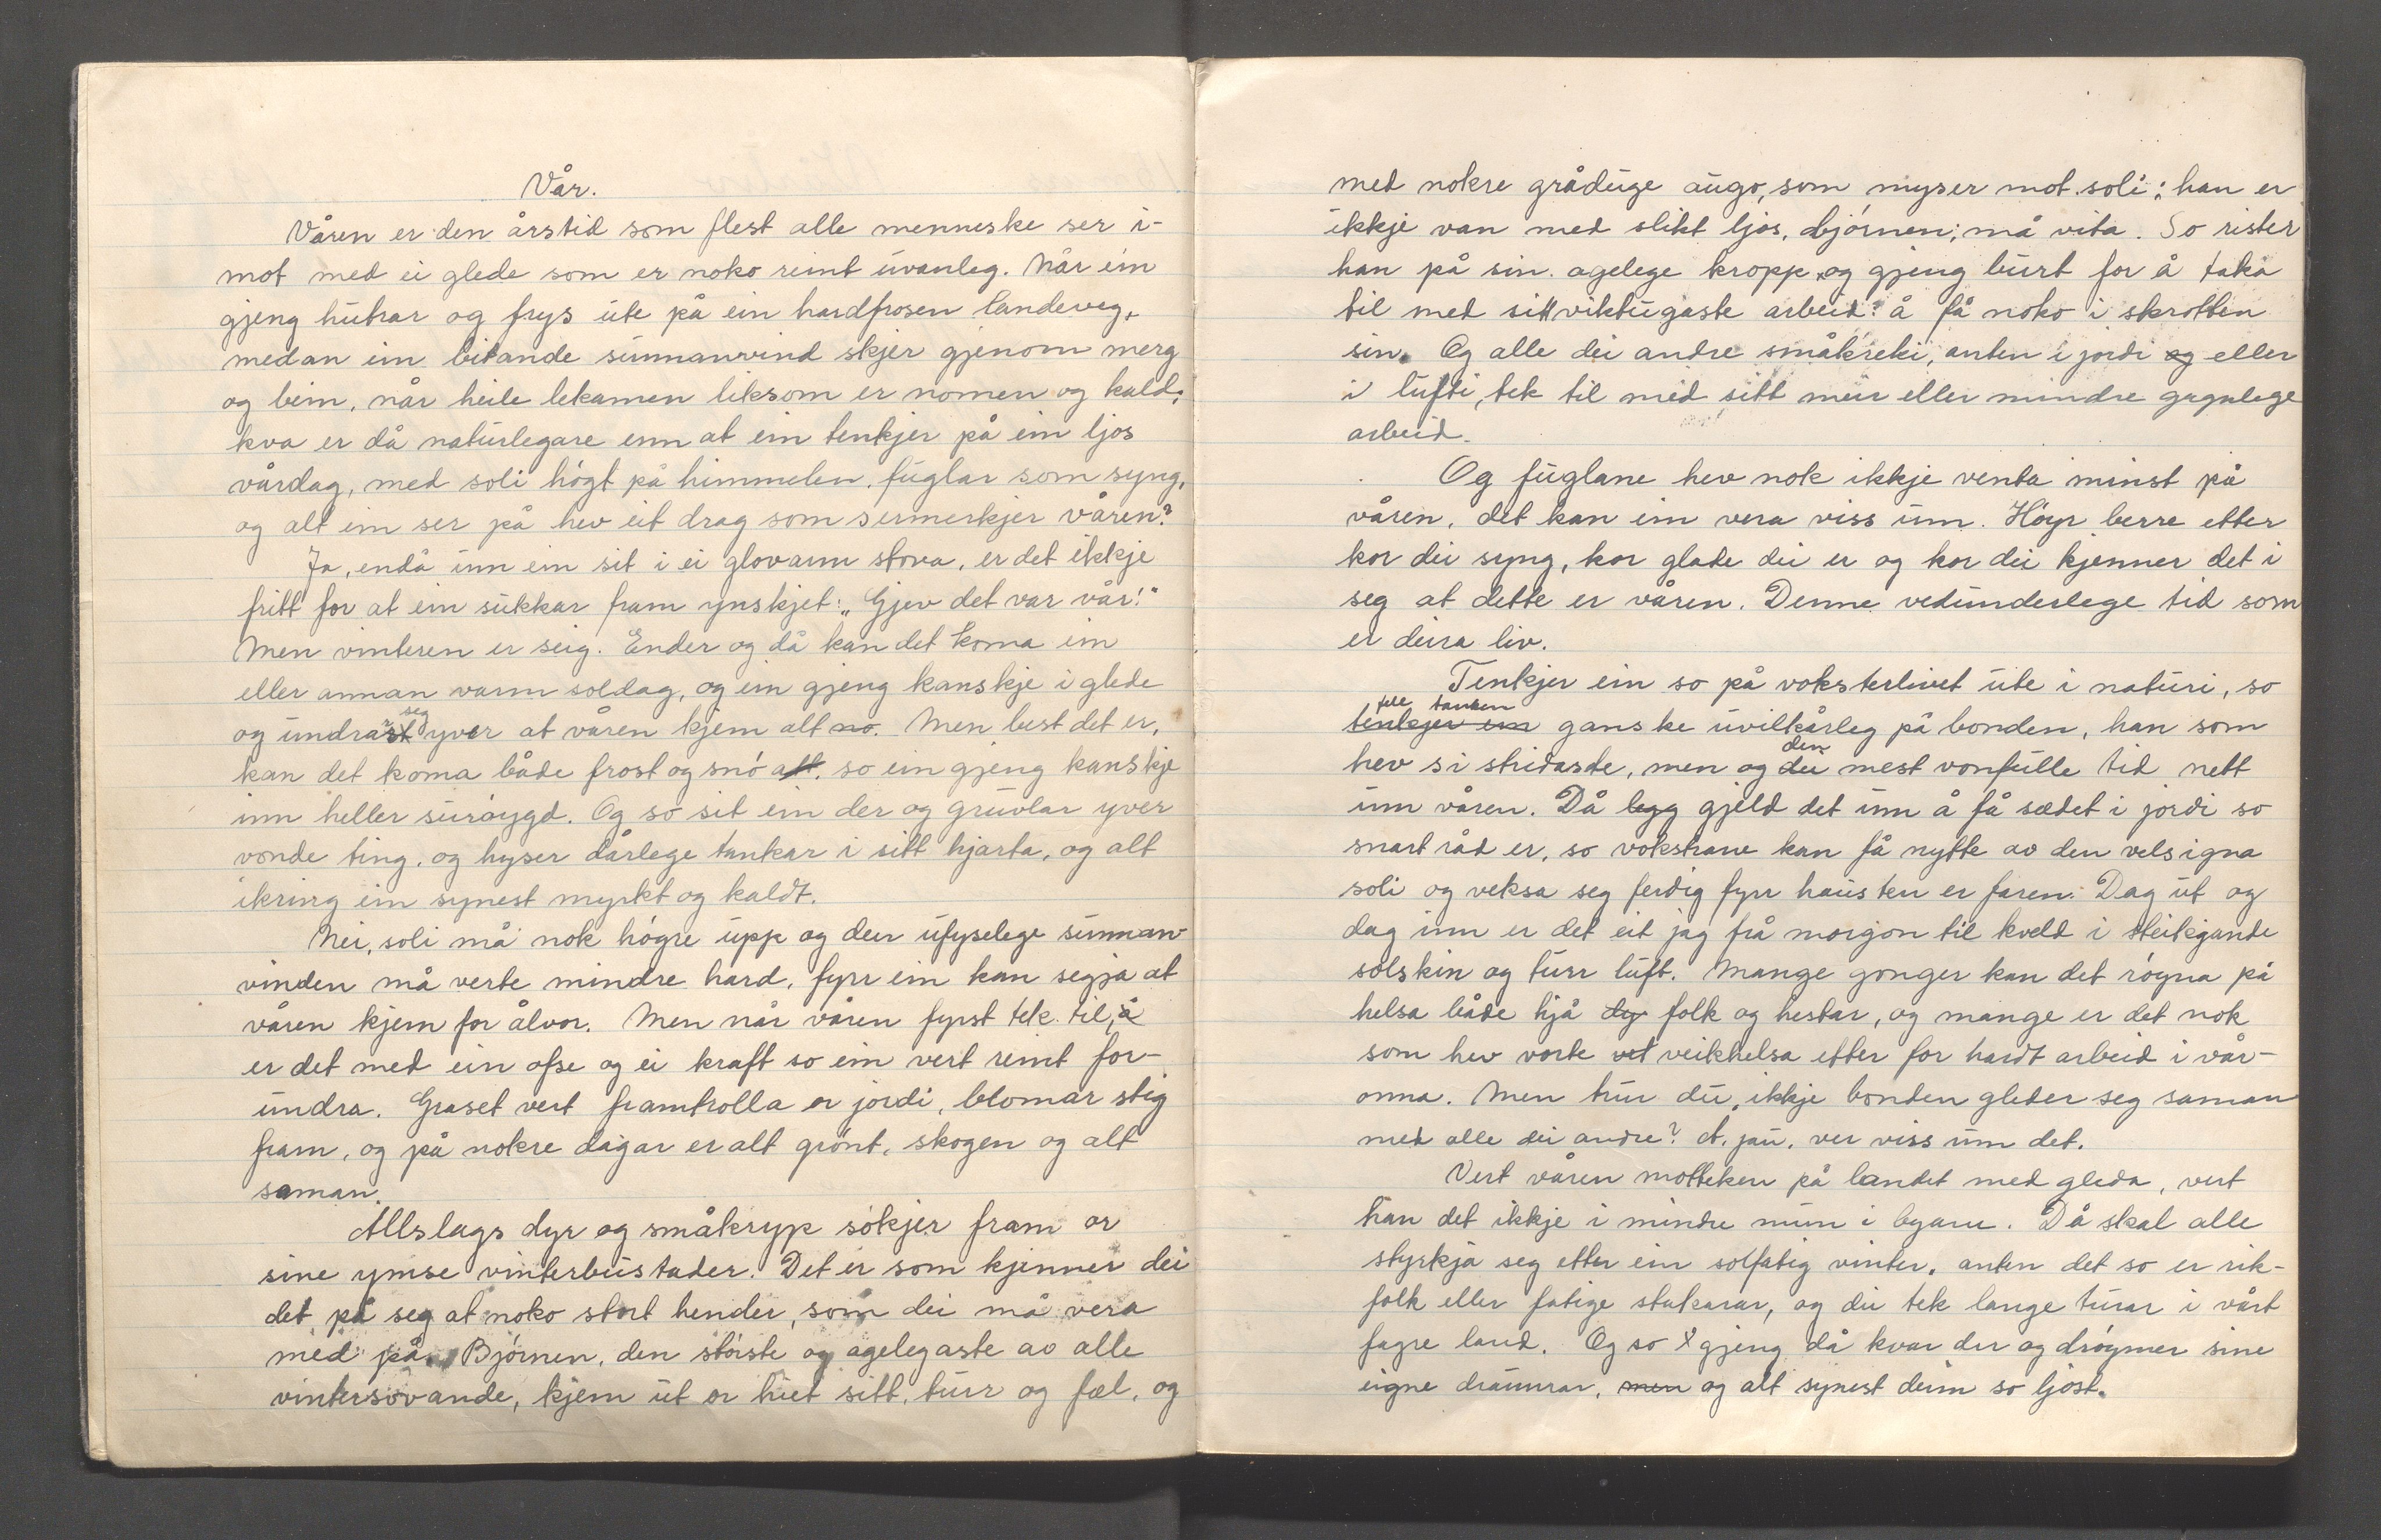 Vår.
Våren er den årstid som flest alle menneske ser i-
mot med ei glede som er noko reint uvanleg. Når ein
gjeng hutrar og frys ute på ein hardfrosen landeveg,
medan ein bitande sunnanvind skjer gjenom merg
og bein, når heile lekamen liksom er nomen og kald;
kva er då naturlegare enn at ein tenkjer på ein ljos
vårdag, med soli högt på himmelen, fuglar som syng,
og alt ein ser på hev eit drag som sermerkjer våren?
Ja, endå um ein sit i ei glovarm stova, er det ikkje
fritt for at ein sukkar fram ynskjet: „Gjev det var vår!"
Men vinteren er seig. Ender og då kan det koma ein
eller annan varm soldag, og ein gjeng kanskje i glede
og undrar seg yver at våren kjem alt no. Men best det er,
kan det koma både frost og snö att, so ein gjeng kanskje
inn heller suröygd. Og so sit ein der og gruvlar yver
vonde ting, og hyser dårlege tankar i sitt hjarta, og alt
ikring ein synest myrkt og kaldt.
Nei, soli må nok högre upp og den ufyselege sunnan-
vinden må verte mindre hard, fyrr ein kan segja at
våren kjem for ålvor. Men når våren fyrst tek til, å
er det med ein ofse og ei kraft so ein vert reint for-
undra. Graset vert framtrolla or jordi, blomar stig
fram, og på nokre dagar er alt grönt, skogen og alt
saman.
Allslags dyr og småkryp sökjer fram or
sine ymse vinterbustader. Det er som kjenner dei
det på seg at noko stort hender, som dei må vera
med på. Björnen, den störste og agelegaste av alle
vintersovande, kjem ut or hiet sitt, turr og fæl, og
med nokre gråduge augo, som myser mot soli; han er
ikkje van med slikt ljos, björnen, må vita. So rister
han på sin agelege kropp og gjeng burt for å taka
til med sitt viktugaste arbeid: å få noko i skrotten
sin. Og alle dei andre småkreki, anten i jordi og eller
i lufti, tek til med sitt meir eller mindre gagnlege
arbeid.
Og fuglane hev nok ikkje venta minst på
våren, det kan ein vera viss um. Höyr berre etter
kor dei syng, kor glade dei er og kor dei kjenner det i
seg at dette er våren. Denne vedunderlege tid som
er deira liv.
Tenkjer ein so på voksterlivet ute i naturi, so
fell tanken
tenkjer ein ganske uvilkårleg på bonden, han som
hev si stridaste, men og den dei mest vonfulle tid nett
um våren. Då legg gjeld det um å få sædet i jordi so
snart råd er, so vokstrane kan få nytte av den velsigna
soli og veksa seg ferdig fyrr hausten er faren. Dag ut og
dag inn er det eit jag frå morgon til kveld i steikjande
solskin og turr luft. Mange gonger kan det röyna på
helsa både hjå dy folk og hestar, og mange er det nok
som hev vorte vet veikhelsa etter for hardt arbeid i vår-
onna. Men trur du, ikkje bonden gleder seg saman
med alle dei andre? Å, jau, ver viss um det.
Vert våren motteken på landet med gleda, vert
han det ikkje i mindre mun i byane. Då skal alle
styrkja seg etter ein solfatig vinter, anten det so er rik-
folk eller fatige stakarar, og dei tek lange turar i vårt
fagre land. Og so gjeng då kvar der og dröymer sine
eigne draumar, men og alt synest deim so ljost.